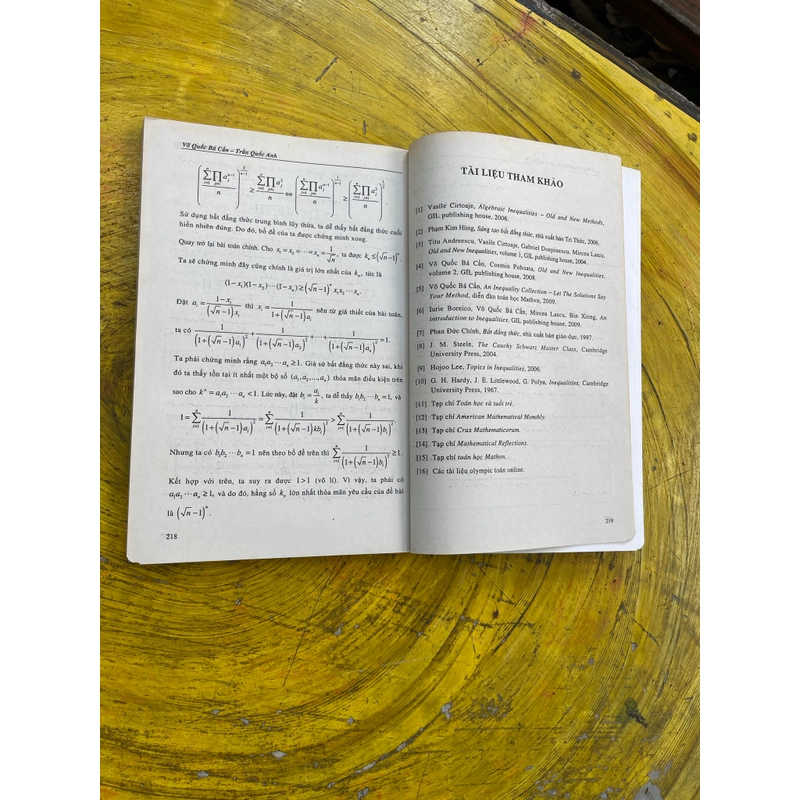 Võ Quốc Bá Cẩn – Trần Quốc Anh
Sử dụng bất đẳng thức trung bình lũy thừa, ta dễ thấy bất đẳng thức cuối
hiển nhiên đúng. Do đó, bổ đề của ta được chứng minh xong.
Quay trở lại bài toán chính. Cho x₁ = x₂ = ··· = xₙ = 1/√n, ta được kₙ ≤ (√n − 1)ⁿ.
Ta sẽ chứng minh đây cũng chính là giá trị lớn nhất của kₙ, tức là
(1 − x₁)(1 − x₂)···(1 − xₙ) ≥ (√n − 1)ⁿ x₁x₂···xₙ.
Đặt aᵢ = (1 − xᵢ)/((√n − 1)xᵢ) thì xᵢ = 1/(1 + (√n − 1)aᵢ) nên từ giả thiết của bài toán,
ta có 1/(1 + (√n − 1)a₁)² + 1/(1 + (√n − 1)a₂)² + ··· + 1/(1 + (√n − 1)aₙ)² = 1.
Ta phải chứng minh rằng a₁a₂···aₙ ≥ 1. Giả sử bất đẳng thức này sai, khi
đó ta thấy tồn tại ít nhất một bộ số (a₁, a₂, ..., aₙ) thỏa mãn điều kiện trên
sao cho kⁿ = a₁a₂···aₙ < 1. Lúc này, đặt bᵢ = aᵢ/k, ta dễ thấy b₁b₂···bₙ = 1, và
1 = Σ 1/(1 + (√n − 1)aᵢ)² = Σ 1/(1 + (√n − 1)kbᵢ)² > Σ 1/(1 + (√n − 1)bᵢ)².
Nhưng ta có b₁b₂···bₙ = 1 nên theo bổ đề trên thì Σ 1/(1 + (√n − 1)bᵢ)² ≥ 1.
Kết hợp với trên, ta suy ra được 1 > 1 (vô lí). Vì vậy, ta phải có
a₁a₂···aₙ ≥ 1, và do đó, hằng số kₙ lớn nhất thỏa mãn yêu cầu của đề bài
là (√n − 1)ⁿ.
218
TÀI LIỆU THAM KHẢO
[1] Vasile Cirtoaje, Algebraic Inequalities – Old and New Methods,
GIL publishing house, 2006.
[2] Phạm Kim Hùng, Sáng tạo bất đẳng thức, nhà xuất bản Tri Thức, 2006.
[3] Titu Andreescu, Vasile Cirtoaje, Gabriel Dospinescu, Mircea Lascu,
Old and New Inequalities, volume 1, GIL publishing house, 2004.
[4] Võ Quốc Bá Cẩn, Cosmin Pohoata, Old and New Inequalities,
volume 2, GIL publishing house, 2008.
[5] Võ Quốc Bá Cẩn, An Inequality Collection – Let The Solutions Say
Your Method, diễn đàn toán học Mathvn, 2009.
[6] Iurie Boreico, Võ Quốc Bá Cẩn, Mircea Lascu, Bin Xiong, An
introduction to Inequalities, GIL publishing house, 2009.
[7] Phan Đức Chính, Bất đẳng thức, nhà xuất bản giáo dục, 1997.
[8] J. M. Steele, The Cauchy Schwarz Master Class, Cambridge
University Press, 2004.
[9] Hojoo Lee, Topics in Inequalities, 2006.
[10] G. H. Hardy, J. E. Littlewood, G. Polya, Inequalities, Cambridge
University Press, 1967.
[11] Tạp chí Toán học và tuổi trẻ.
[12] Tạp chí American Mathematical Monthly.
[13] Tạp chí Crux Mathematicorum.
[14] Tạp chí Mathematical Reflections.
[15] Tạp chí toán học Mathvn.
[16] Các tài liệu olympic toán online.
219